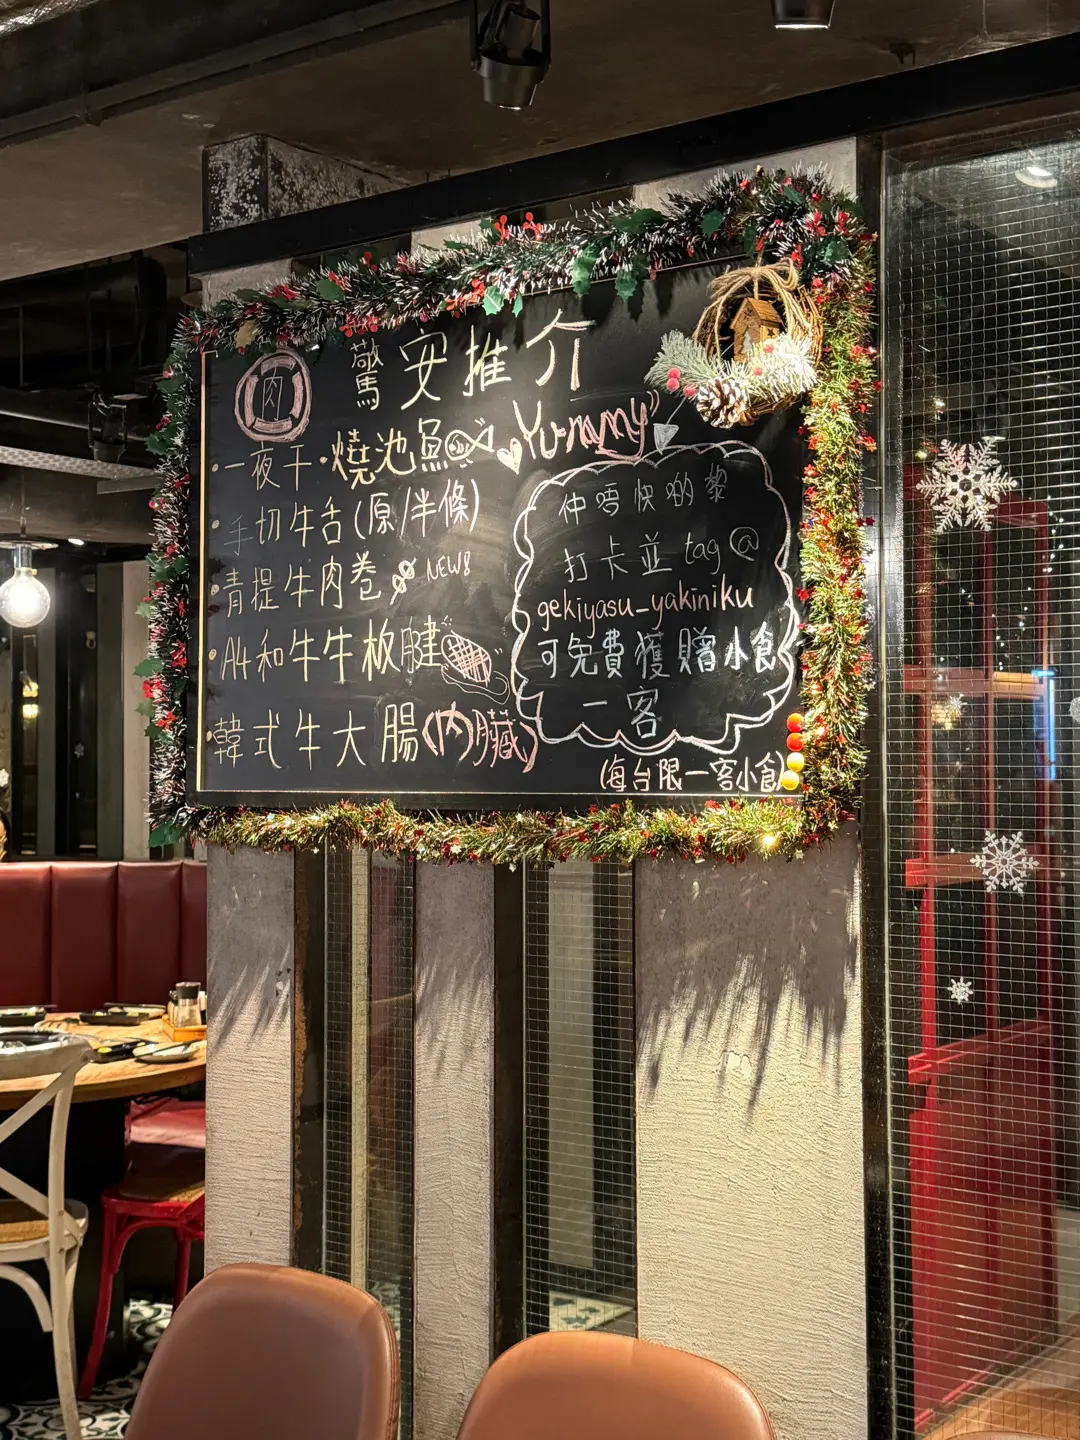 肉
驚安推介
•一夜干•燒池魚
Yummy
•手切牛舌(原/半條)
•青提牛肉卷 NEW!
•A4和牛牛板腱
•韓式牛大腸(內臟)
仲唔快啲黎
打卡並 tag @
gekiyasu_yakiniku
可免費獲贈小食
一客
(每台限一客小食)